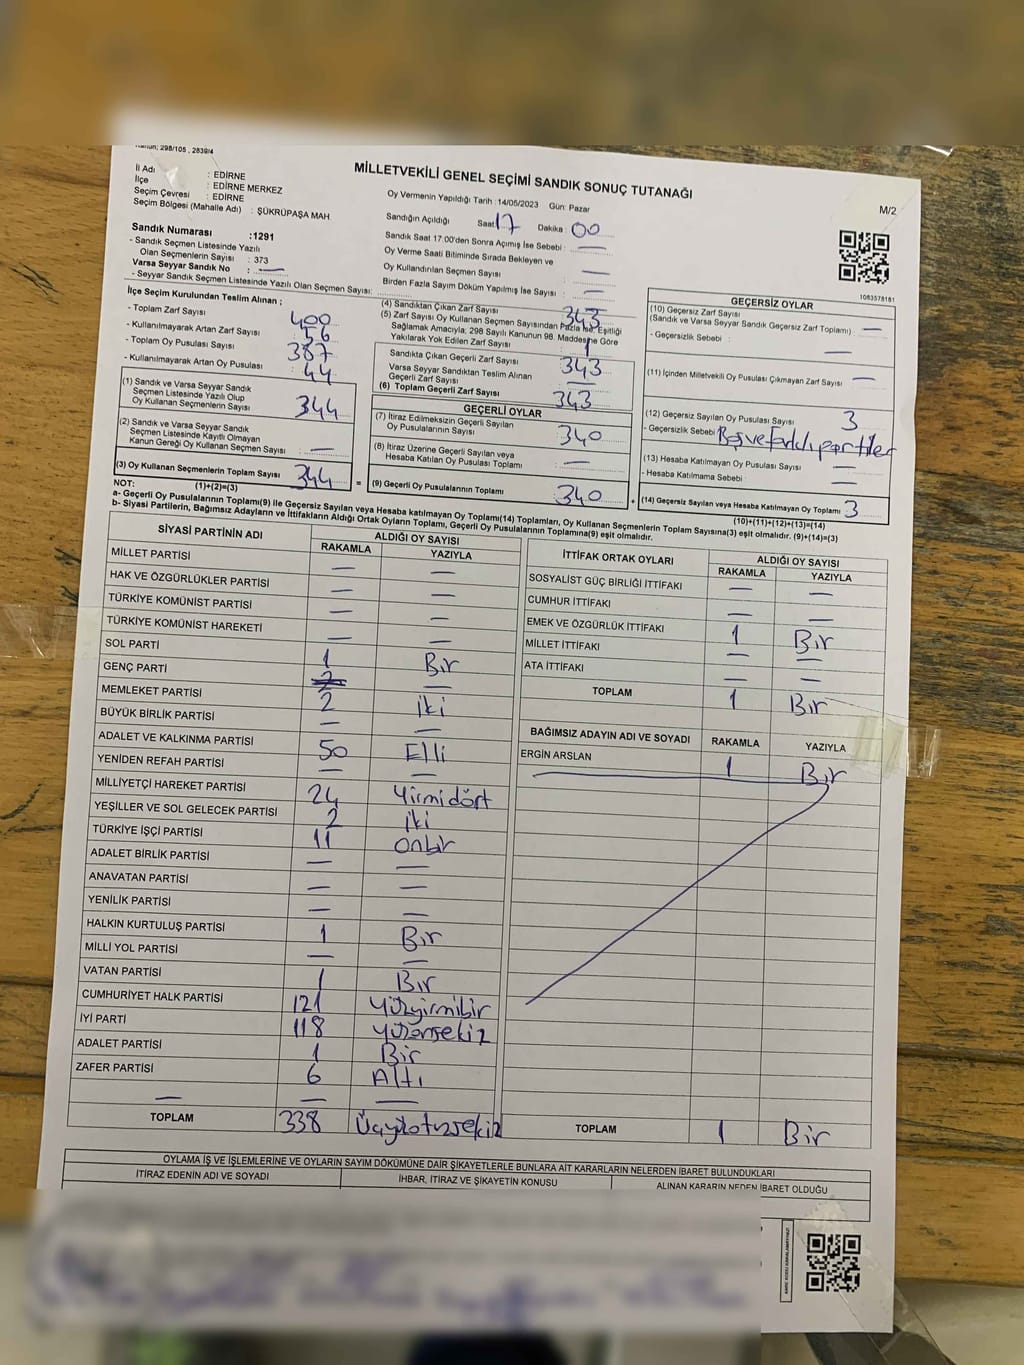 Kanun; 298/105 , 2839/4
MİLLETVEKİLİ GENEL SEÇİMİ SANDIK SONUÇ TUTANAĞI
M/2
İl Adı : EDİRNE
İlçe : EDİRNE MERKEZ
Seçim Çevresi : EDİRNE
Seçim Bölgesi (Mahalle Adı) : ŞÜKRÜPAŞA MAH.
Sandık Numarası :1291
- Sandık Seçmen Listesinde Yazılı
Olan Seçmenlerin Sayısı : 373
Varsa Seyyar Sandık No : —
- Seyyar Sandık Seçmen Listesinde Yazılı Olan Seçmen Sayısı:
Oy Vermenin Yapıldığı Tarih :14/05/2023 Gün: Pazar
Sandığın Açıldığı Saat 17 Dakika : 00
Sandık Saat 17.00'den Sonra Açılmış İse Sebebi : —
Oy Verme Saati Bitiminde Sırada Bekleyen ve
Oy Kullandırılan Seçmen Sayısı : —
Birden Fazla Sayım Döküm Yapılmış İse Sayısı : —
1083578181
İlçe Seçim Kurulundan Teslim Alınan ;
- Toplam Zarf Sayısı : 400
- Kullanılmayarak Artan Zarf Sayısı : 56
- Toplam Oy Pusulası Sayısı : 387
- Kullanılmayarak Artan Oy Pusulası : 44
(1) Sandık ve Varsa Seyyar Sandık
Seçmen Listesinde Yazılı Olup
Oy Kullanan Seçmenlerin Sayısı : 344
(2) Sandık ve Varsa Seyyar Sandık
Seçmen Listesinde Kayıtlı Olmayan
Kanun Gereği Oy Kullanan Seçmen Sayısı : —
(3) Oy Kullanan Seçmenlerin Toplam Sayısı 344
(1)+(2)=(3)
(4) Sandıktan Çıkan Zarf Sayısı : 343
(5) Zarf Sayısı Oy Kullanan Seçmen Sayısından Fazla İse, Eşitliği
Sağlamak Amacıyla, 298 Sayılı Kanunun 98. Maddesine Göre
Yakılarak Yok Edilen Zarf Sayısı : 1
Sandıkta Çıkan Geçerli Zarf Sayısı : 343
Varsa Seyyar Sandıktan Teslim Alınan
Geçerli Zarf Sayısı : —
(6) Toplam Geçerli Zarf Sayısı : 343
GEÇERLİ OYLAR
(7) İtiraz Edilmeksizin Geçerli Sayılan
Oy Pusulalarının Sayısı : 340
(8) İtiraz Üzerine Geçerli Sayılan veya
Hesaba Katılan Oy Pusulası Toplamı : —
= (9) Geçerli Oy Pusulalarının Toplamı 340
GEÇERSİZ OYLAR
(10) Geçersiz Zarf Sayısı
(Sandık ve Varsa Seyyar Sandık Geçersiz Zarf Toplamı) : —
- Geçersizlik Sebebi : —
(11) İçinden Milletvekili Oy Pusulası Çıkmayan Zarf Sayısı : —
(12) Geçersiz Sayılan Oy Pusulası Sayısı : 3
- Geçersizlik Sebebi : Boş ve farklı partiler
(13) Hesaba Katılmayan Oy Pusulası Sayısı : —
- Hesaba Katılmama Sebebi : —
+ (14) Geçersiz Sayılan veya Hesaba Katılmayan Oy Toplamı 3
(10)+(11)+(12)+(13)=(14)
NOT:
a- Geçerli Oy Pusulalarının Toplamı(9) ile Geçersiz Sayılan veya Hesaba Katılmayan Oy Toplamı(14) Toplamları, Oy Kullanan Seçmenlerin Toplam Sayısına(3) eşit olmalıdır. (9)+(14)=(3)
b- Siyasi Partilerin, Bağımsız Adayların ve İttifakların Aldığı Ortak Oyların Toplamı, Geçerli Oy Pusulalarının Toplamına(9) eşit olmalıdır.
SİYASİ PARTİNİN ADI ALDIĞI OY SAYISI
RAKAMLA YAZIYLA
MİLLET PARTİSİ — —
HAK VE ÖZGÜRLÜKLER PARTİSİ — —
TÜRKİYE KOMÜNİST PARTİSİ — —
TÜRKİYE KOMÜNİST HAREKETİ — —
SOL PARTİ 1 Bir
GENÇ PARTİ —
MEMLEKET PARTİSİ 2 İki
BÜYÜK BİRLİK PARTİSİ — —
ADALET VE KALKINMA PARTİSİ 50 Elli
YENİDEN REFAH PARTİSİ — —
MİLLİYETÇİ HAREKET PARTİSİ 24 Yirmidört
YEŞİLLER VE SOL GELECEK PARTİSİ 2 İki
TÜRKİYE İŞÇİ PARTİSİ 11 Onbir
ADALET BİRLİK PARTİSİ — —
ANAVATAN PARTİSİ — —
YENİLİK PARTİSİ — —
HALKIN KURTULUŞ PARTİSİ 1 Bir
MİLLİ YOL PARTİSİ — —
VATAN PARTİSİ 1 Bir
CUMHURİYET HALK PARTİSİ 121 Yüzyirmibir
İYİ PARTİ 118 Yüzonsekiz
ADALET PARTİSİ 1 Bir
ZAFER PARTİSİ 6 Altı
— — —
TOPLAM 338 Üçyüzotuzsekiz
İTTİFAK ORTAK OYLARI ALDIĞI OY SAYISI
RAKAMLA YAZIYLA
SOSYALİST GÜÇ BİRLİĞİ İTTİFAKI — —
CUMHUR İTTİFAKI — —
EMEK VE ÖZGÜRLÜK İTTİFAKI 1 Bir
MİLLET İTTİFAKI — —
ATA İTTİFAKI — —
TOPLAM 1 Bir
BAĞIMSIZ ADAYIN ADI VE SOYADI RAKAMLA YAZIYLA
ERGİN ARSLAN 1 Bir
TOPLAM 1 Bir
OYLAMA İŞ VE İŞLEMLERİNE VE OYLARIN SAYIM DÖKÜMÜNE DAİR ŞİKAYETLERLE BUNLARA AİT KARARLARIN NELERDEN İBARET BULUNDUKLARI
İTİRAZ EDENİN ADI VE SOYADI İHBAR, İTİRAZ VE ŞİKAYETİN KONUSU ALINAN KARARIN NEDEN İBARET OLDUĞU